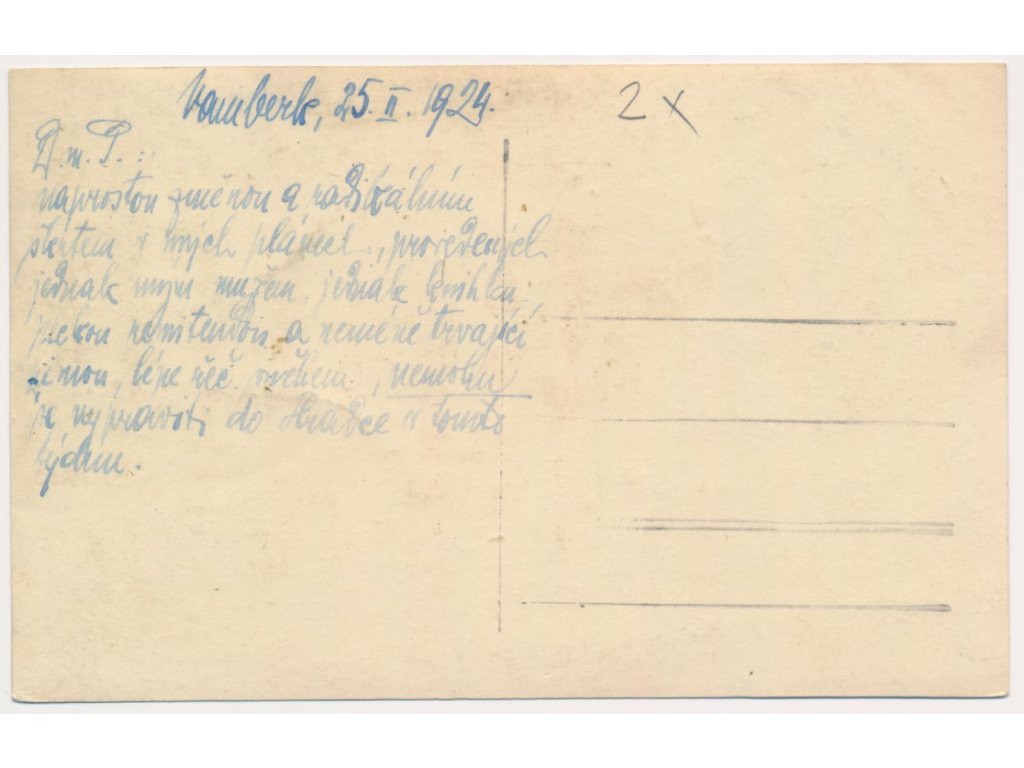 Vamberk, 25. II. 1924.
2x
D. m. P. :
naprostou změnou a radikálním
škrtem v mých plánech, provedených
jednak mým mužem, jednak
a neméně trvající
zimou, lépe řeč. sněhem, nemohu
se vypraviti do Hradce v tomto
týdnu.